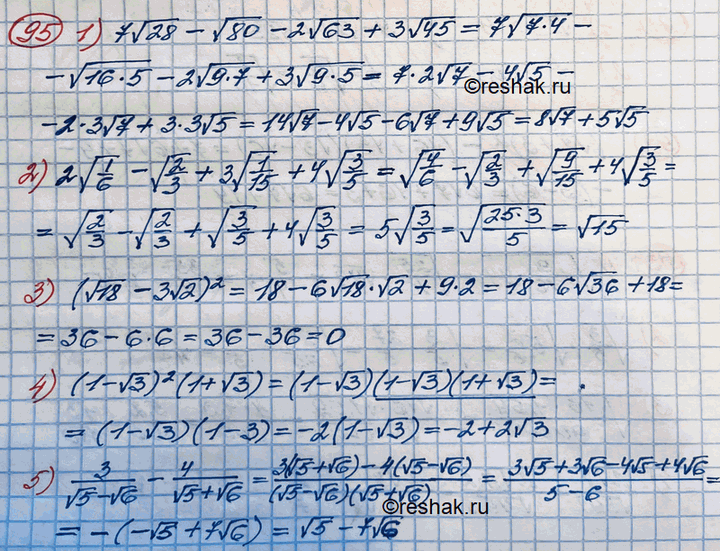 95 1) 7√28 − √80 − 2√63 + 3√45 = 7√(7·4) −
−√(16·5) − 2√(9·7) + 3√(9·5) = 7·2√7 − 4√5 −
©reshak.ru
−2·3√7 + 3·3√5 = 14√7 − 4√5 − 6√7 + 9√5 = 8√7 + 5√5
2) 2√(1/6) − √(2/3) + 3√(1/15) + 4√(3/5) = √(4/6) − √(2/3) + √(9/15) + 4√(3/5) =
= √(2/3) − √(2/3) + √(3/5) + 4√(3/5) = 5√(3/5) = √((25·3)/5) = √15
3) (√18 − 3√2)² = 18 − 6√18·√2 + 9·2 = 18 − 6√36 + 18 =
= 36 − 6·6 = 36 − 36 = 0
4) (1−√3)²(1+√3) = (1−√3)(1−√3)(1+√3) =
= (1−√3)(1−3) = −2(1−√3) = −2+2√3
5) 3/(√5−√6) − 4/(√5+√6) = (3(√5+√6) − 4(√5−√6))/((√5−√6)(√5+√6)) = (3√5+3√6−4√5+4√6)/(5−6) =
©reshak.ru
= −(−√5 + 7√6) = √5 − 7√6